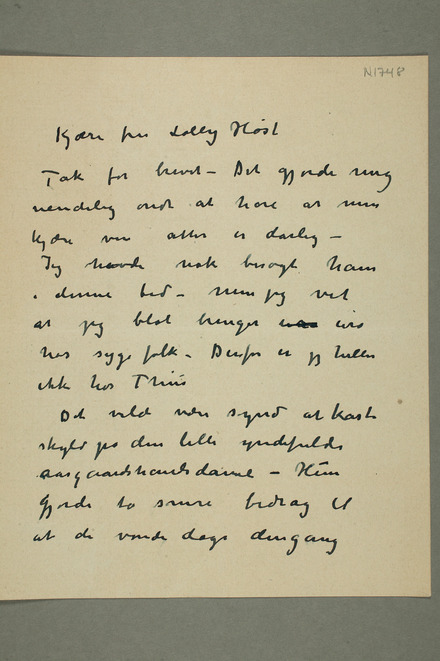 N1748
Kjære fru Dolly Høst
Tak for brevet – Det gjorde mig
uendelig ondt at høre at min
kjære ven atter er darlig –
Jeg havde nok besøgt ham
i denne tid – men jeg vet
at jeg blot bringer uro
hos syge folk – Derfor er jg heller
ikke hos Thiis
Det vilde være synd at kaste
skyld på den lille yndefulde
aasgaardstrandsdame – Hun
gjorde to smaa bedrag til
at de vonde dage dengang